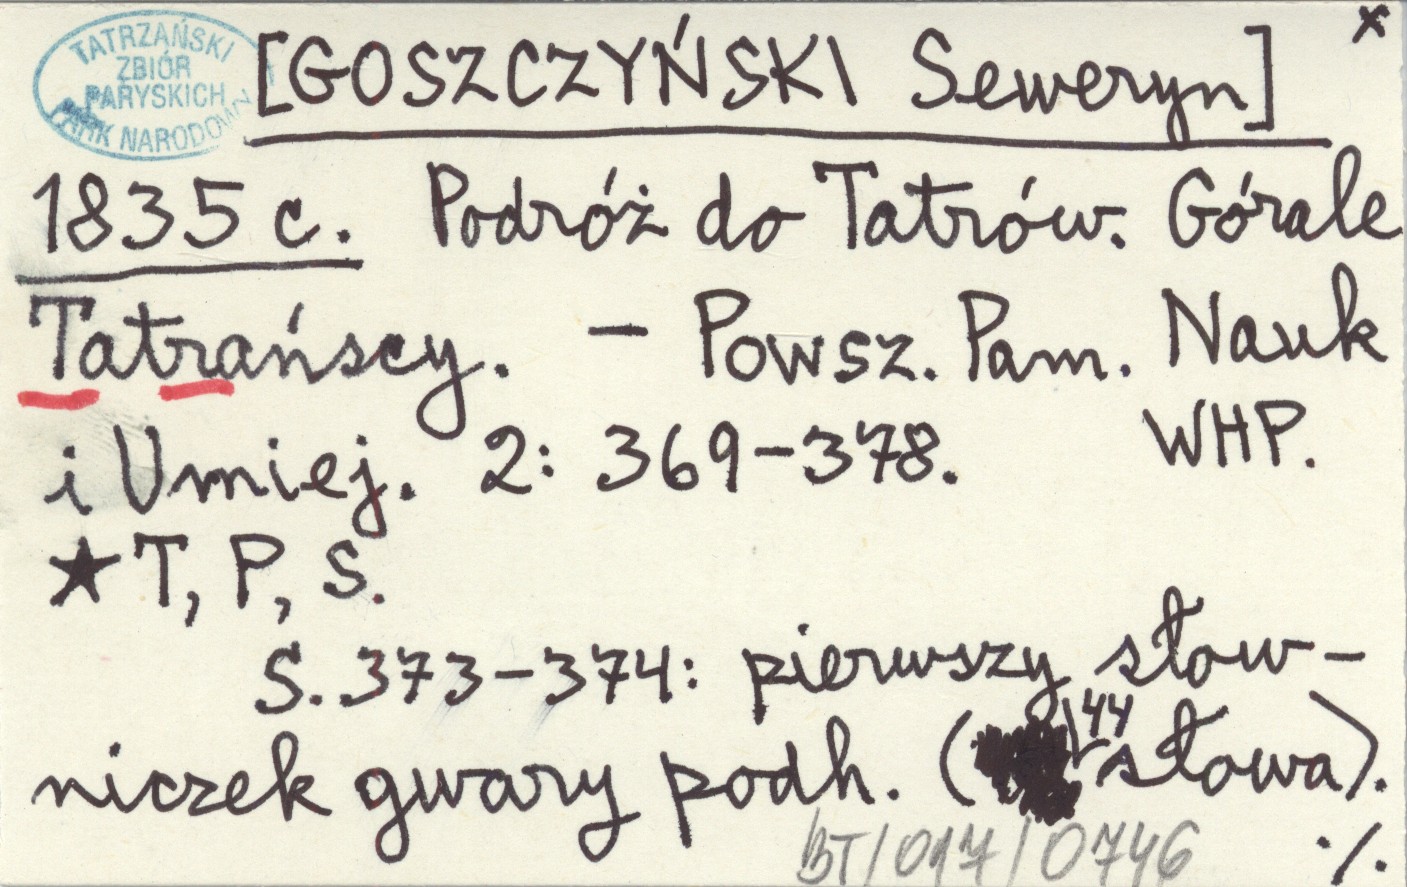 TATRZAŃSKI
ZBIÓR
PARYSKICH
PARK NARODOWY
x
[GOSZCZYŃSKI Seweryn]
1835 c. Podróż do Tatrów. Górale
Tatrańscy. – Powsz. Pam. Nauk
i Umiej. 2: 369–378. WHP.
★ T, P, S.
S. 373–374: pierwszy słow-
niczek gwary podh. (44 słowa).
BT/017/0746
./.